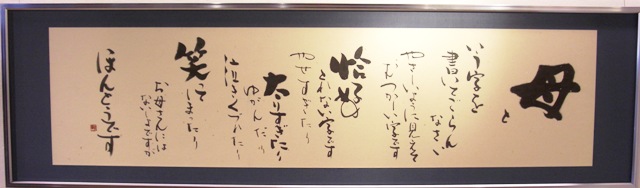 母
と
いう字を
書いてごらん
なさい
やさしいように見えて
むつかしい字です
恰好の
とれない字です
やせすぎたり
太りすぎたり
ゆがんだり
泣きくずれたり
笑ってしまったり
お母さんには
ないしょですが
ほんとうです